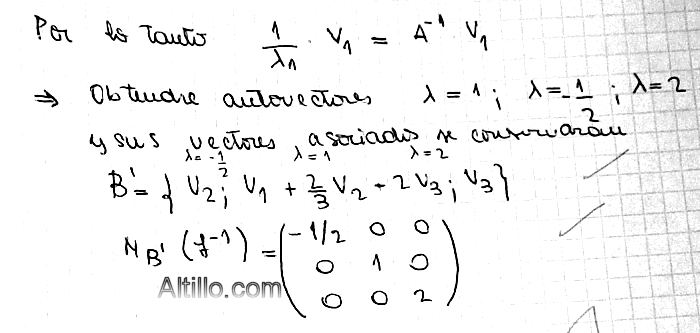 Por lo tanto 1/λ₁ · V₁ = A⁻¹ · V₁
⇒ Obtendre autovectores λ = 1 ; λ = -1/2 ; λ = 2
y sus vectores asociados se conservaran
λ = -1/2 λ = 1 λ = 2
B' = { V₂ ; V₁ + 2/3 V₂ - 2 V₃ ; V₃ }
M B' (f⁻¹) = ( -1/2 0 0
0 1 0
0 0 2 )
Altillo.com